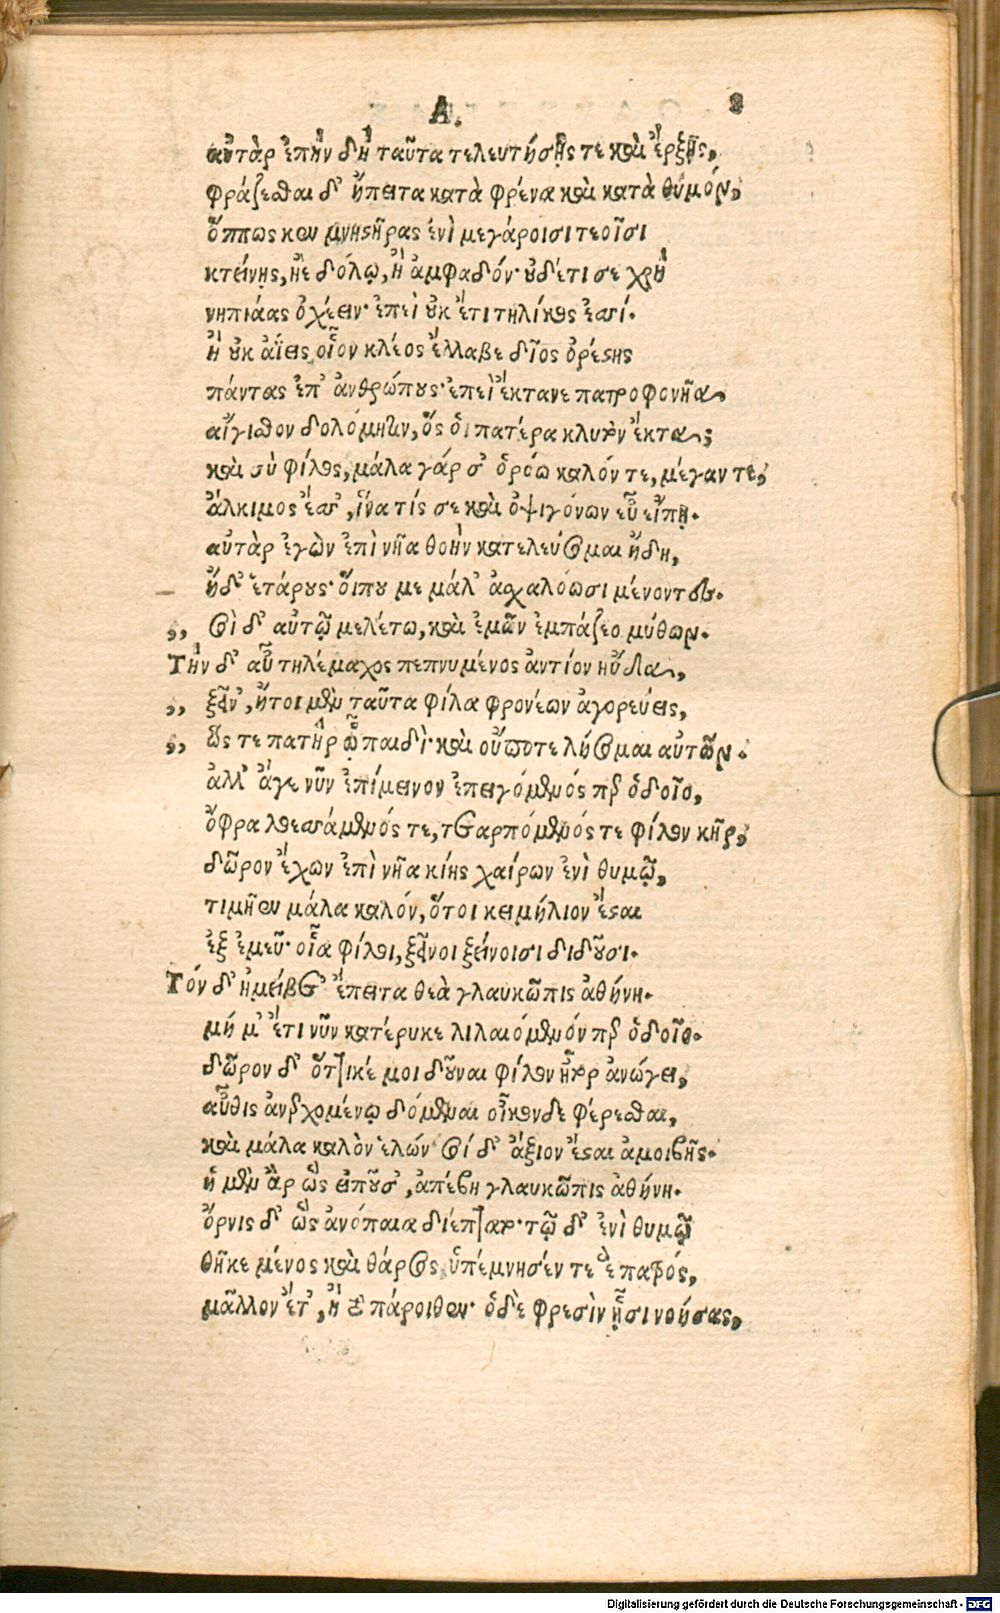 Α. 8
αὐτὰρ ἐπὴν δὴ ταῦτα τελευτήσῃς τε καὶ ἔρξῃς,
φράζεσθαι δ' ἤπειτα κατὰ φρένα καὶ κατὰ θυμόν,
ὅππως κεν μνηστῆρας ἐνὶ μεγάροισι τεοῖσι
κτείνῃς, ἠὲ δόλῳ, ἢ ἀμφαδόν· οὐδέ τι σε χρὴ
νηπιάας ὀχέειν· ἐπεὶ οὐκ ἔτι τηλίκος ἐστί.
ἢ οὐκ ἀΐεις οἷον κλέος ἔλλαβε δῖος ὀρέστης
πάντας ἐπ' ἀνθρώπους· ἐπεὶ ἔκτανε πατροφονῆα,
αἴγισθον δολόμητιν, ὅς οἱ πατέρα κλυτὸν ἔκτα;
καὶ σὺ φίλος, μάλα γάρ σ' ὁρόω καλόν τε, μέγαν τε,
ἄλκιμος ἔσσ', ἵνα τίς σε καὶ ὀψιγόνων εὖ εἴπῃ.
αὐτὰρ ἐγὼν ἐπὶ νῆα θοὴν κατελεύσομαι ἤδη,
ἠδ' ἑτάρους· οἵ που με μάλ' ἀσχαλόωσι μένοντες.
,, σοὶ δ' αὐτῷ μελέτω, καὶ ἐμῶν ἐμπάζεο μύθων.
Τὴν δ' αὖ τηλέμαχος πεπνυμένος ἀντίον ηὔδα,
,, ξεῖν', ἤτοι μὲν ταῦτα φίλα φρονέων ἀγορεύεις,
,, ὥς τε πατὴρ ᾧ παιδὶ· καὶ οὔποτε λήσομαι αὐτῶν.
ἀλλ' ἄγε νῦν ἐπίμεινον ἐπειγόμενός περ ὁδοῖο,
ὄφρα λοεσσάμενός τε, τεταρπόμενός τε φίλον κῆρ,
δῶρον ἔχων ἐπὶ νῆα κίῃς χαίρων ἐνὶ θυμῷ,
τιμῆεν μάλα καλόν, ὅ τοι κειμήλιον ἔσται
ἐξ ἐμεῦ· οἷα φίλοι, ξεῖνοι ξείνοισι διδοῦσι.
Τόν δ' ἠμείβετ' ἔπειτα θεὰ γλαυκῶπις ἀθήνη.
μή μ' ἔτι νῦν κατέρυκε λιλαιόμενόν περ ὁδοῖο.
δῶρον δ' ὅττι κέ μοι δοῦναι φίλον ἦτορ ἀνώγει,
αὖθις ἀνερχομένῳ δόμεναι οἶκονδε φέρεσθαι,
καὶ μάλα καλὸν ἑλών· σοί δ' ἄξιον ἔσται ἀμοιβῆς.
ἡ μὲν ἂρ ὣς εἰποῦσ', ἀπέβη γλαυκῶπις ἀθήνη.
ὄρνις δ' ὣς ἀνόπαια διέπτατο· τῷ δ' ἐνὶ θυμῷ
θῆκε μένος καὶ θάρσος, ὑπέμνησέν τε ἑ πατρός,
μᾶλλον ἔτ', ἢ τὸ πάροιθεν· ὁ δὲ φρεσὶν ᾗσι νοήσας,
Digitalisierung gefördert durch die Deutsche Forschungsgemeinschaft - DFG